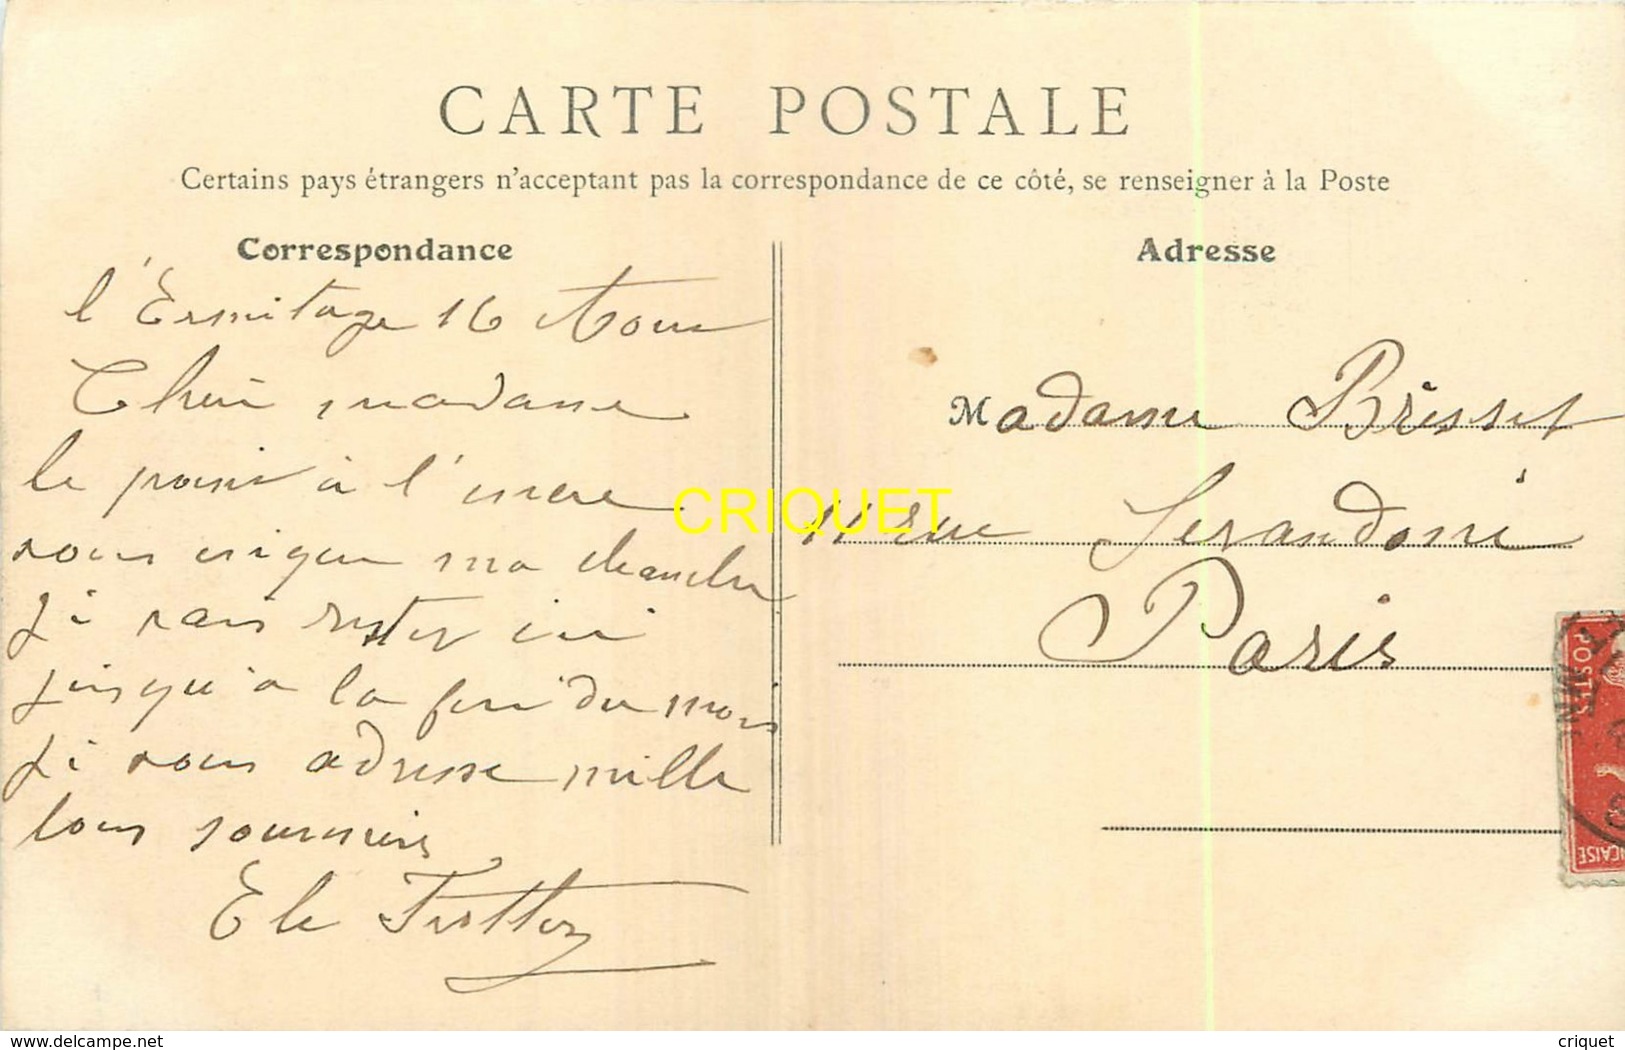 CARTE POSTALE
Certains pays étrangers n'acceptant pas la correspondance de ce côté, se renseigner à la Poste
Correspondance
Adresse
l'Ermitage 16 Aout
Chère madame
le point à l'encre
vous indique ma chambre
je vais rester ici
jusqu'à la fin du mois
je vous adresse mille
bons souvenirs
E le
Madame Brisset
11 rue Servandoni
Paris
CRIQUET
POSTES
delcampe.net
criquet